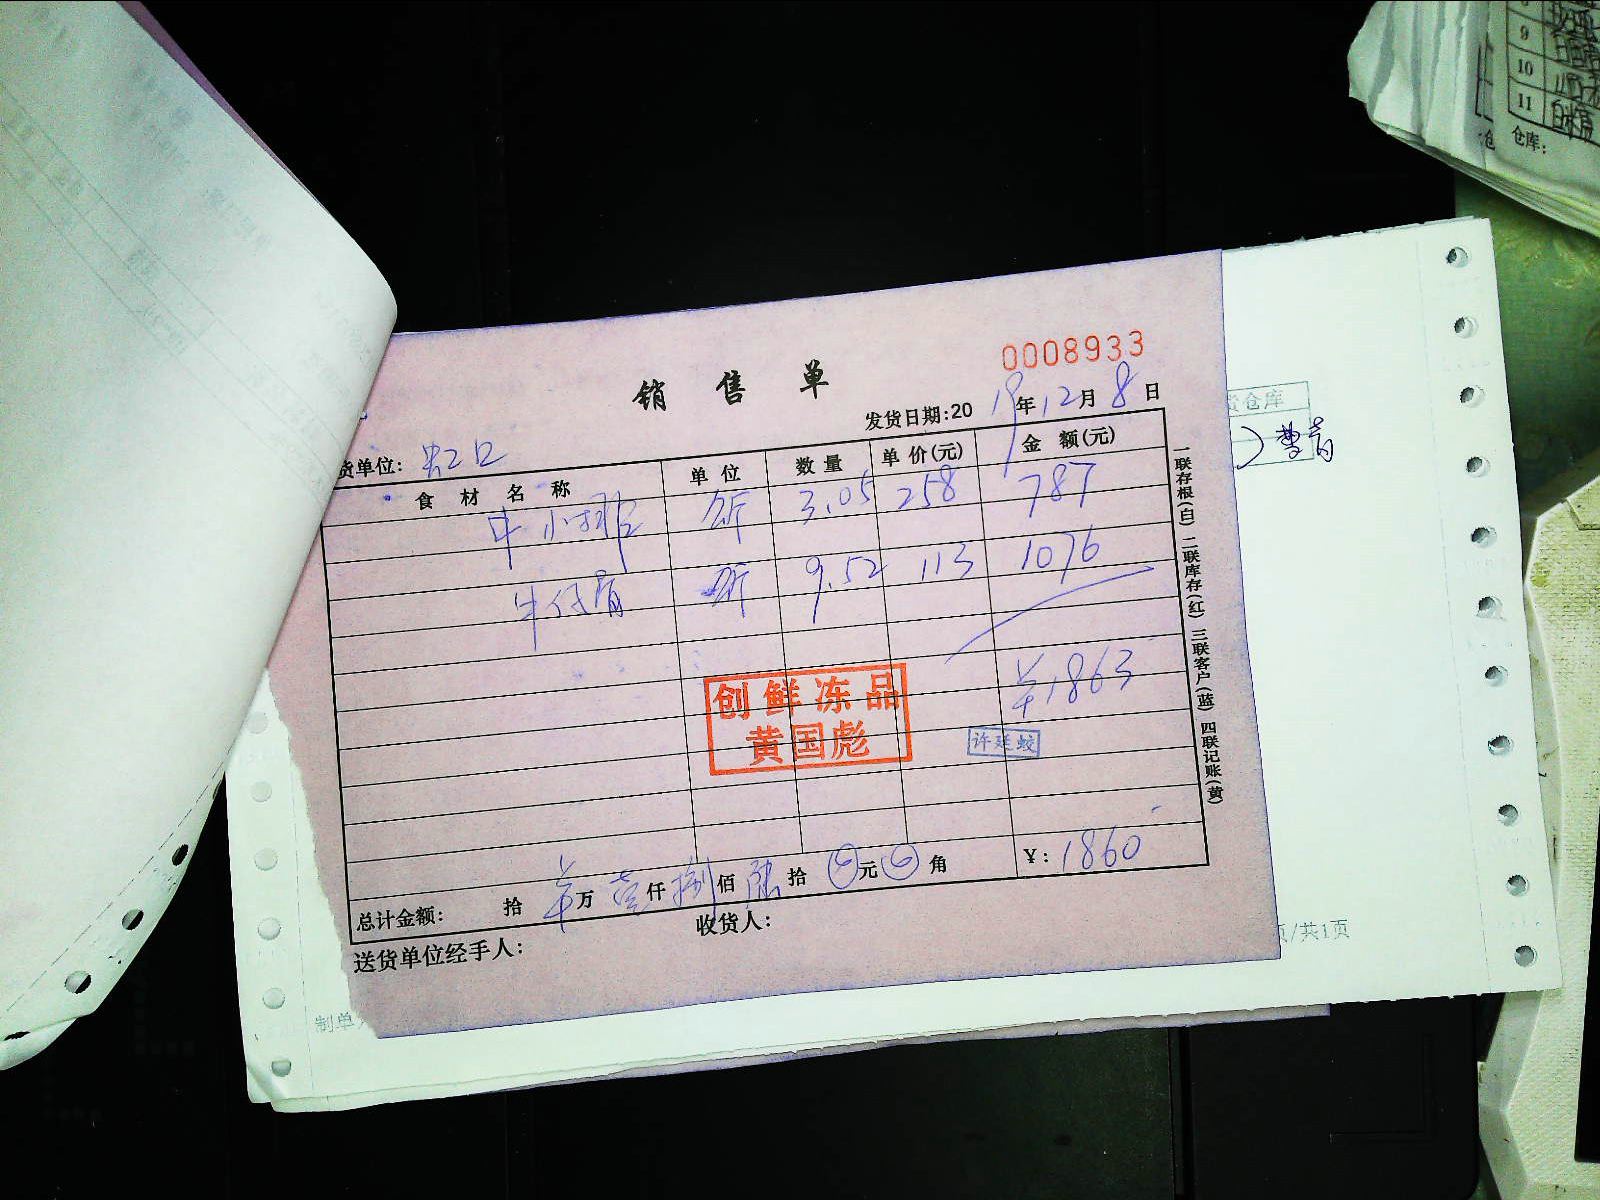 9
10
11
仓库:
0008933
销售单
发货日期:2019年12月8日
货单位: 虹口
食材名称 单位 数量 单价(元) 金额(元)
牛小排 斤 3.05 258 787
牛仔骨 斤 9.52 113 1076
¥1863
创鲜冻品
黄国彪
许廷蛟
总计金额: 拾 羊万 壹仟 捌佰 陆拾 元 角 ¥: 1860
送货单位经手人: 收货人:
一联存根(白) 二联库存(红) 三联客户(蓝) 四联记账(黄)
货仓库
页/共1页
制单